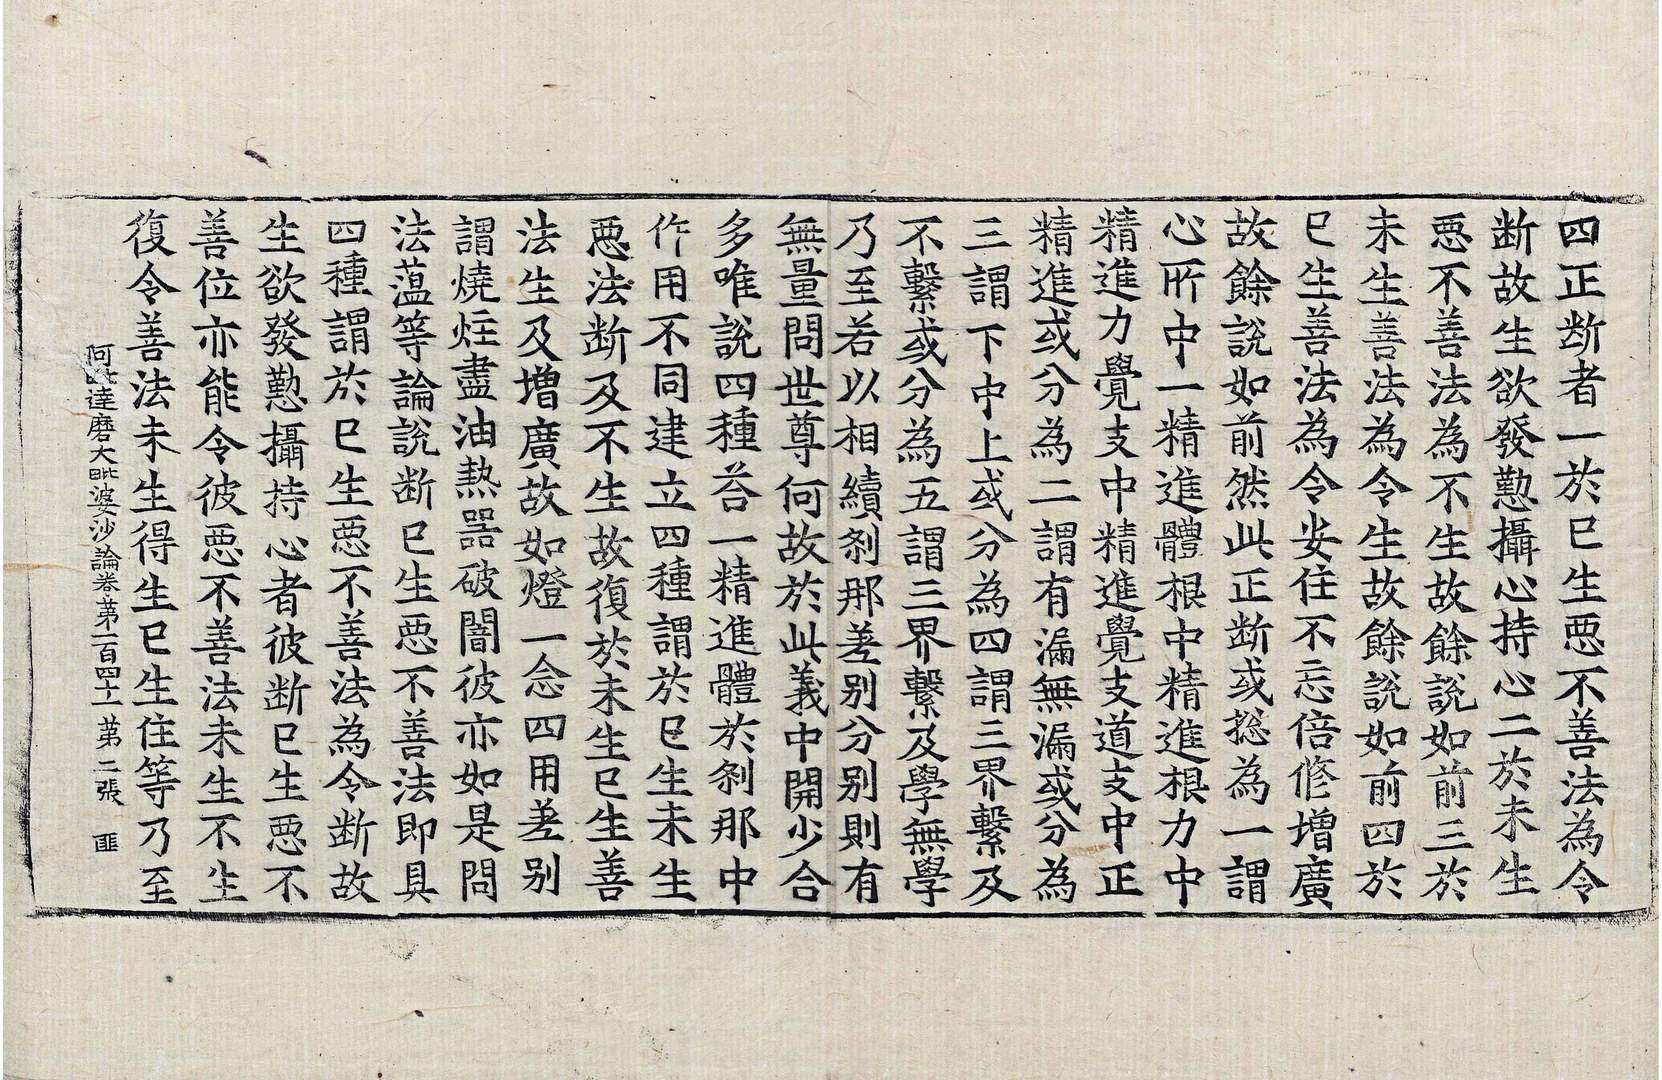 四正断者一於已生惡不善法為令
断故生欲發勤攝心持心二於未生
惡不善法為不生故餘說如前三於
未生善法為令生故餘說如前四於
已生善法為令安住不忘倍修增廣
故餘說如前然此正断或揔為一謂
心所中一精進體根中精進根力中
精進力覺支中精進覺支道支中正
精進或分為二謂有漏無漏或分為
三謂下中上或分為四謂三界繫及
不繫或分為五謂三界繫及學無學
乃至若以相續刹那差别分别則有
無量問世尊何故於此義中開少合
多唯說四種荅一精進體於刹那中
作用不同建立四種謂於已生未生
惡法断及不生故復於未生已生善
法生及增廣故如燈一念四用差别
謂燒炷盡油熱器破闇彼亦如是問
法蘊等論說断已生惡不善法即具
四種謂於已生惡不善法為令断故
生欲發勤攝持心者彼断已生惡不
善位亦能令彼惡不善法未生不生
復令善法未生得生已生住等乃至
阿毗達磨大毗婆沙論卷第一百四十一 第二張 匪